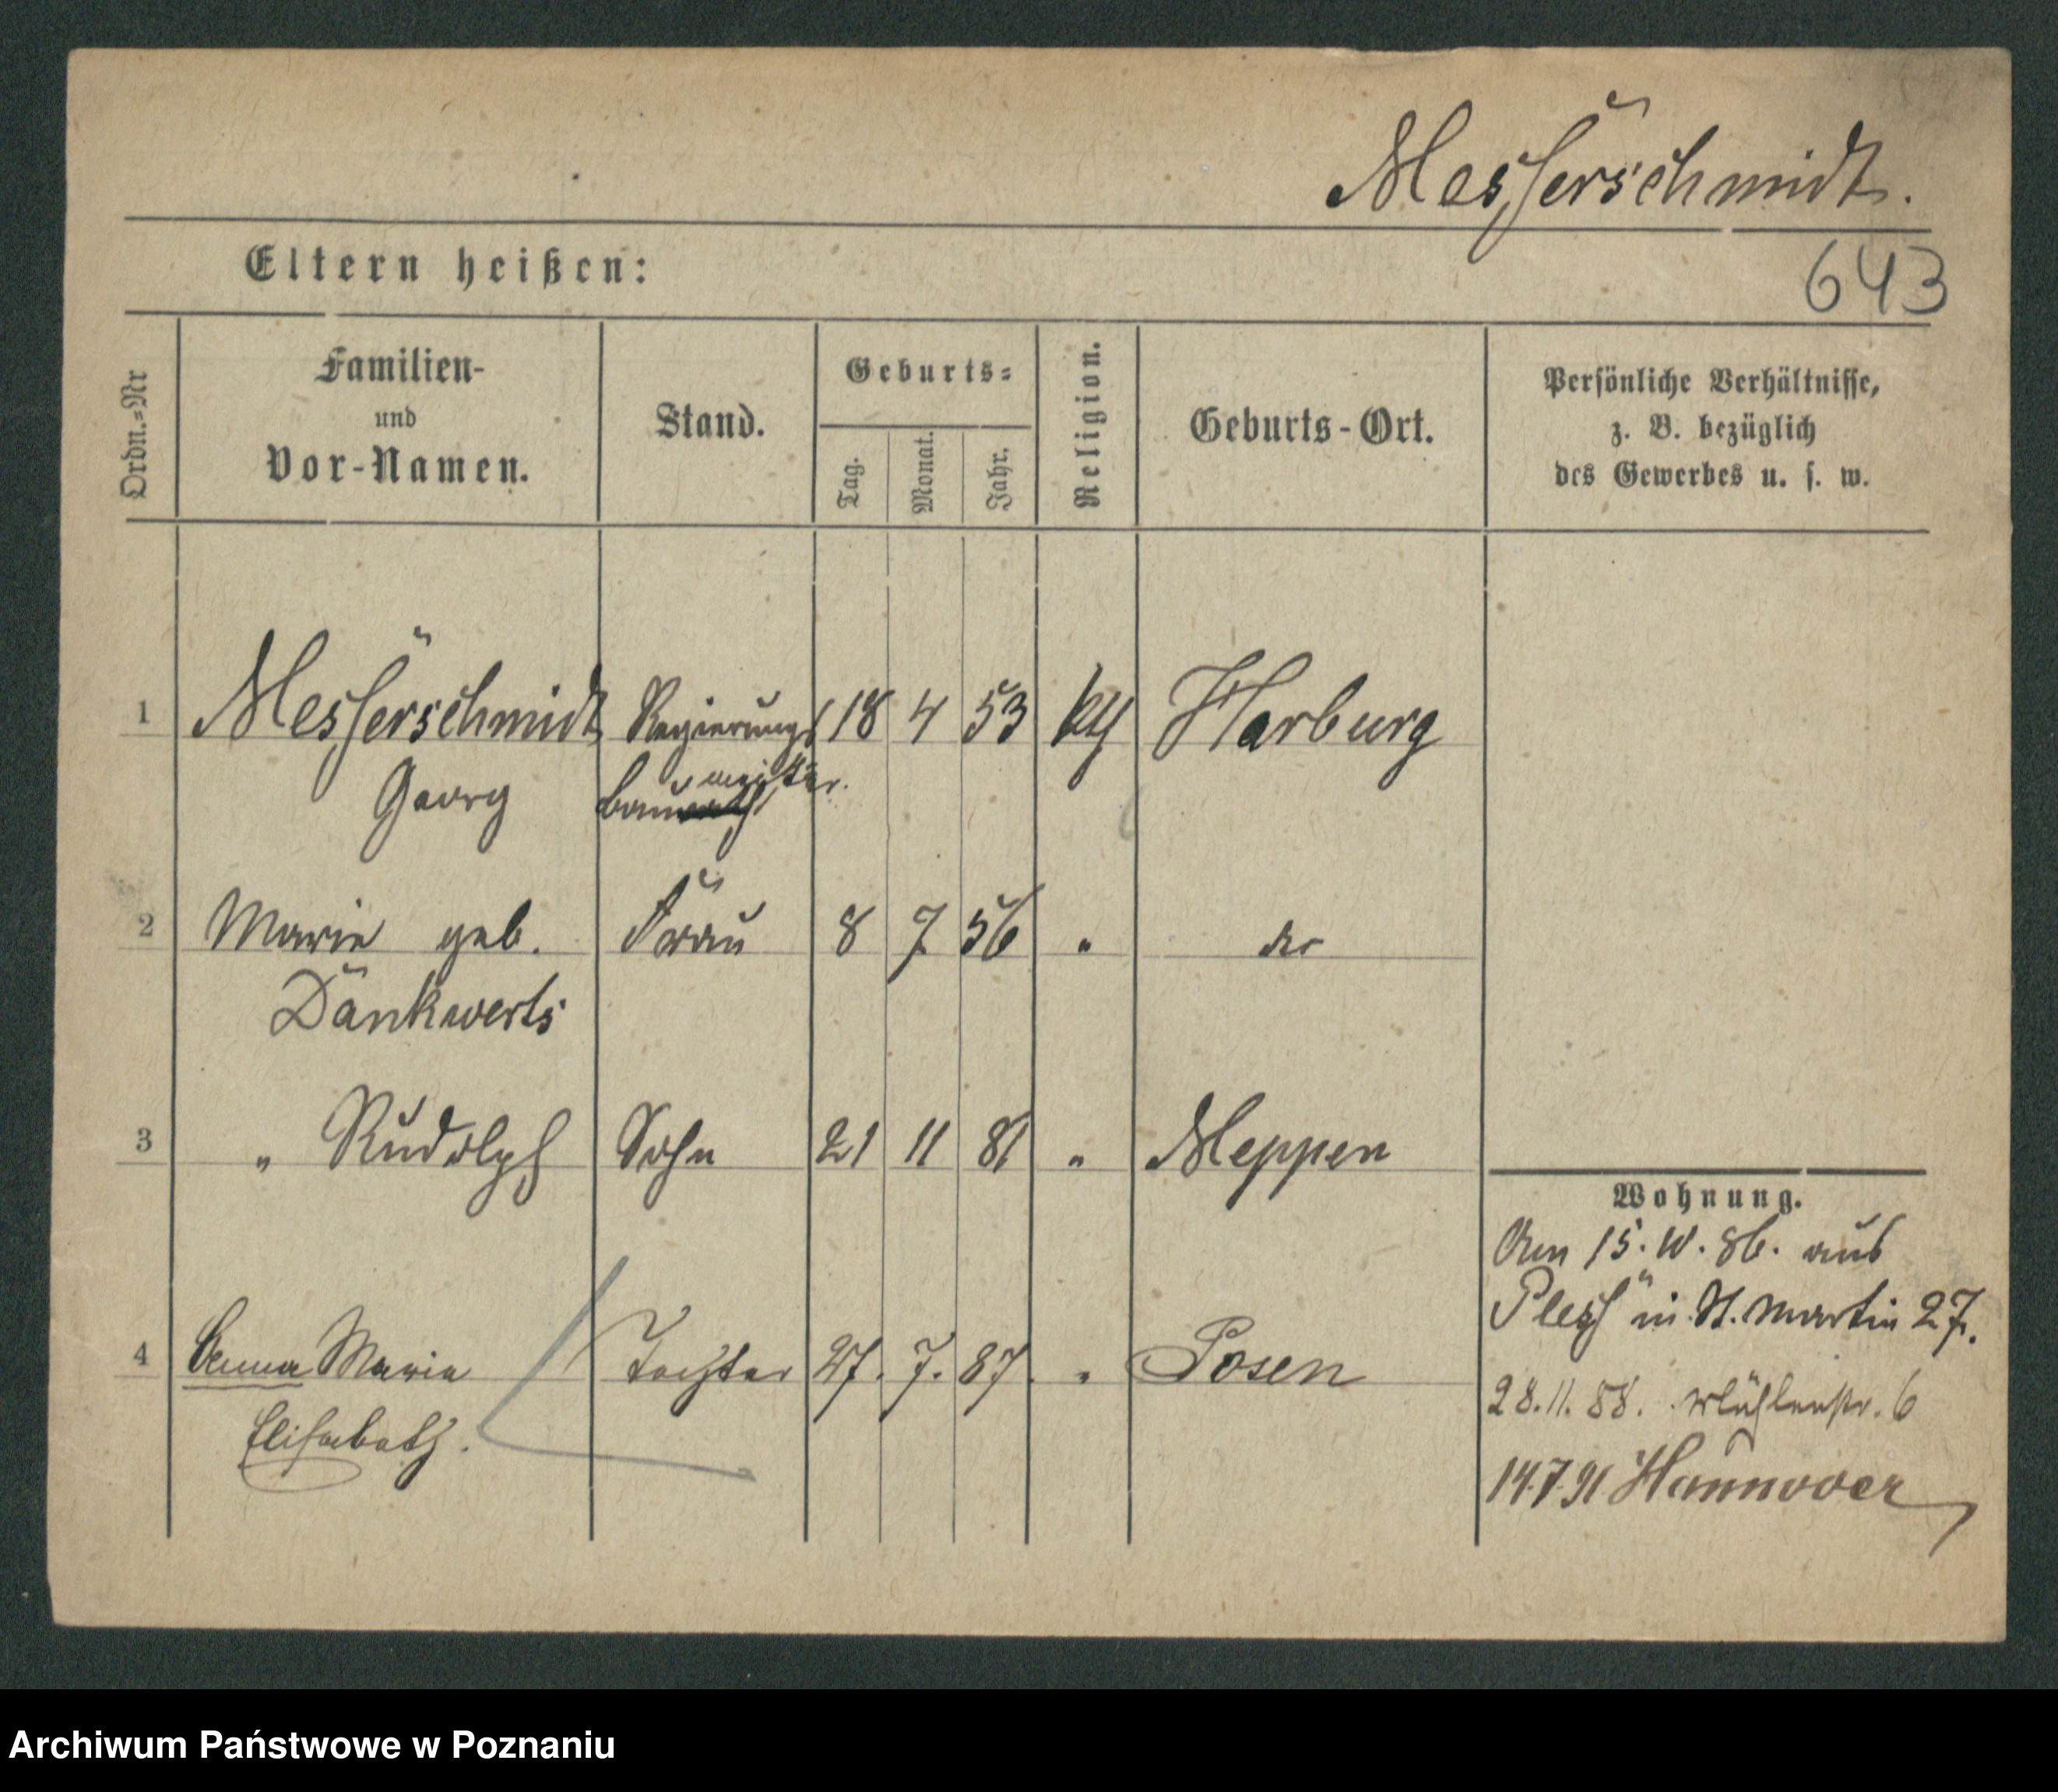 Messerschmidt.
Eltern heißen:
643
Ordn.=Nr
Familien-
und
Vor-Namen.
Stand.
Geburts=
Tag.
Monat.
Jahr.
Religion.
Geburts-Ort.
Persönliche Verhältnisse,
z. B. bezüglich
des Gewerbes u. s. w.
1 Messerschmidt Regierungs 18 4 53 Harburg
Georg baumeister.
2 Marie geb. Frau 8 7 56 " do
Dankwerts
3 " Rudolph Sohn 21 11 81 " Meppen
Wohnung.
Am 15. 10. 86. aus
Pless in St. Martin 27.
4 Anna Maria Tochter 27. 7. 87. " Posen
Elisabeth.
28. 11. 88. Mühlenstr. 6
14.7.91 Hannover
Archiwum Państwowe w Poznaniu